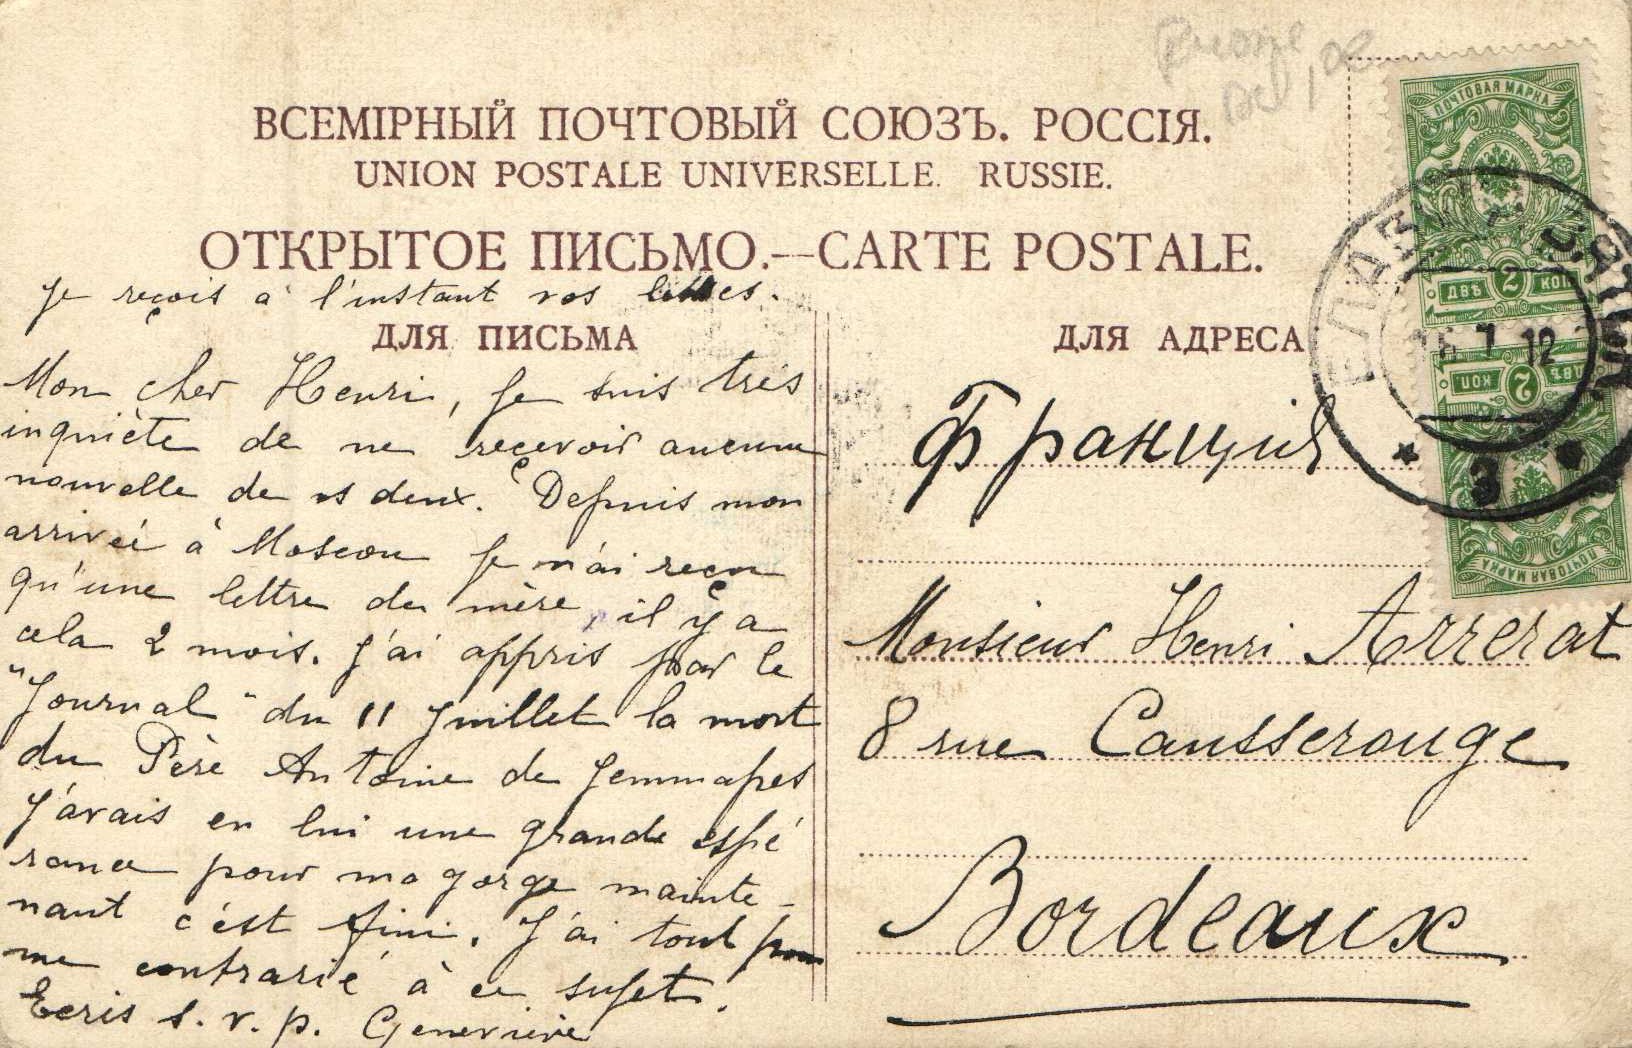 ВСЕМІРНЫЙ ПОЧТОВЫЙ СОЮЗЪ. РОССІЯ.
UNION POSTALE UNIVERSELLE. RUSSIE.
ОТКРЫТОЕ ПИСЬМО.—CARTE POSTALE.
je reçois à l'instant vos lettres.
ДЛЯ ПИСЬМА
Mon cher Henri, je suis très
inquiète de ne recevoir aucune
nouvelle de vs deux. Depuis mon
arrivée à Moscou je n'ai reçu
qu'une lettre de mère, il y a
cela 2 mois. J'ai appris par le
"Journal" du 11 Juillet la mort
du Père Antoine de Jemmapes
J'avais en lui une grande espé
rance pour ma gorge mainte-
nant c'est fini. J'ai tout pour
me contrarié à ce sujet.
Ecris s.v.p. Geneviève
ДЛЯ АДРЕСА
Франція
Monsieur Henri Arrerat
8 rue Causserouge
Bordeaux
ПОЧТОВАЯ МАРКА
ДВѢ 2 КОП
ДВѢ 2 КОП
ПОЧТОВАЯ МАРКА
7 12
3